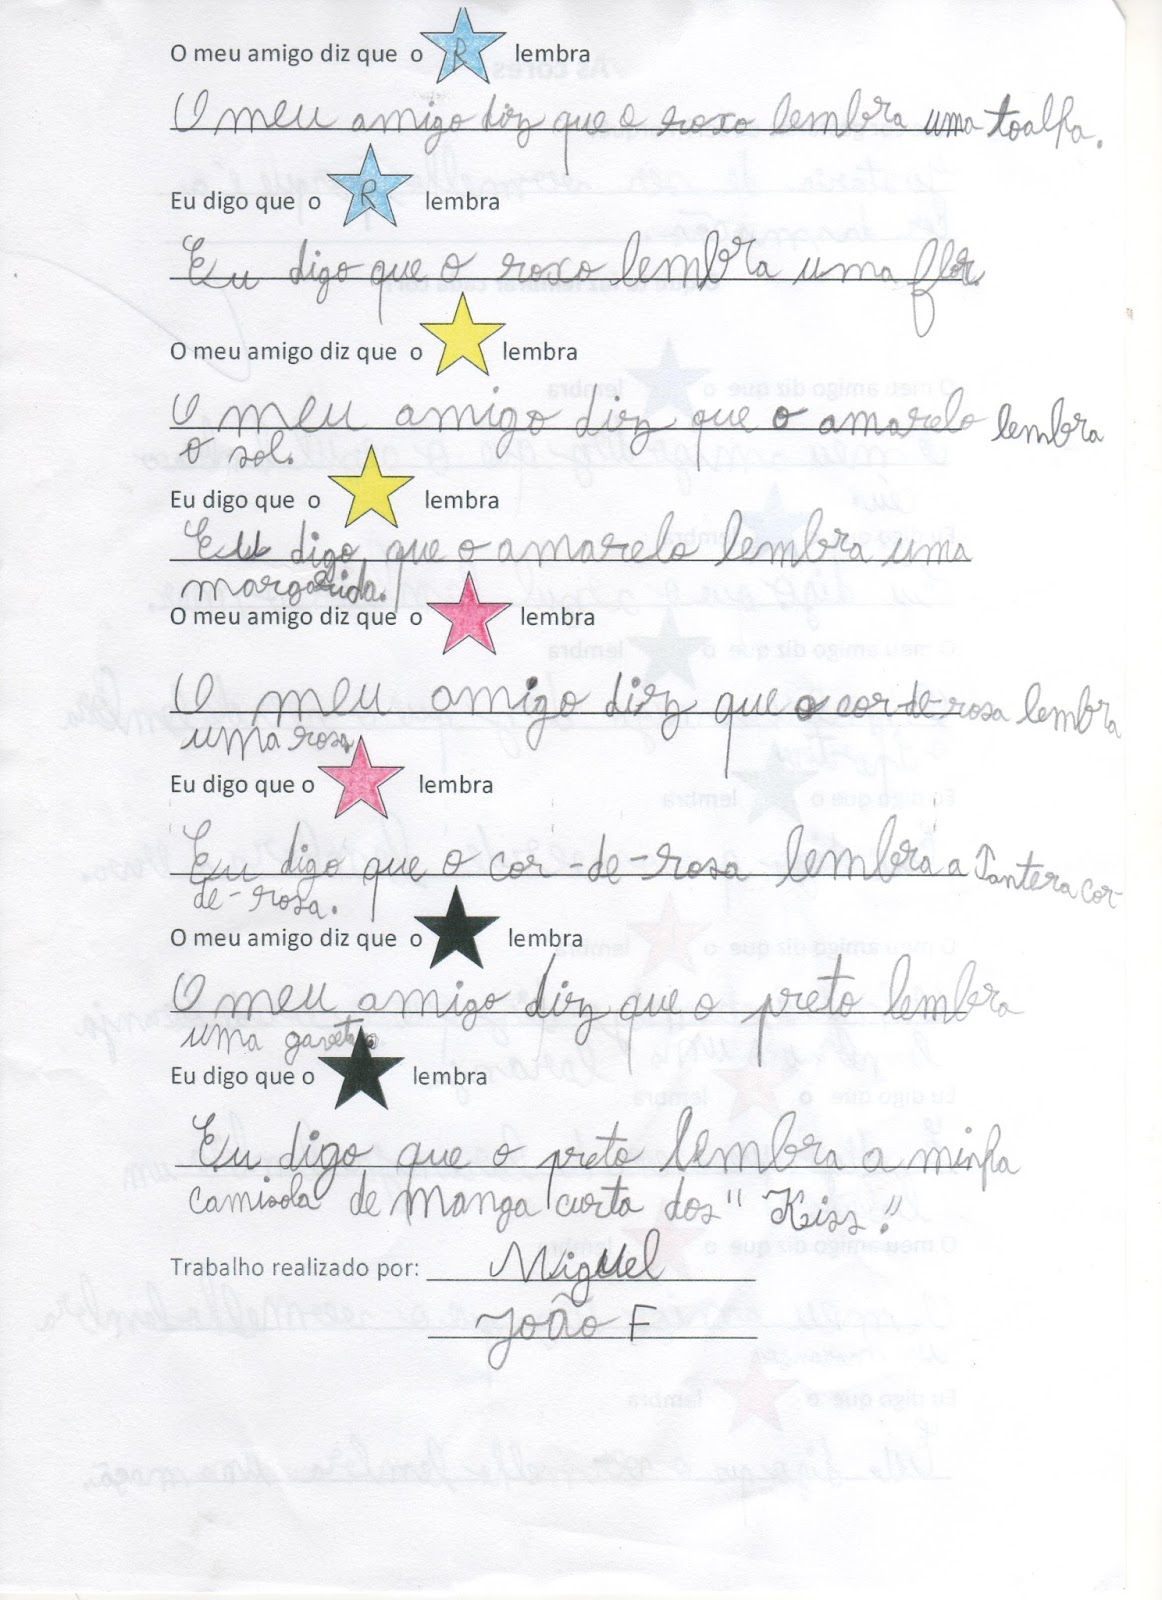 O meu amigo diz que o R lembra
O meu amigo diz que o roxo lembra uma toalha.
Eu digo que o R lembra
Eu digo que o roxo lembra uma flor.
O meu amigo diz que o lembra
O meu amigo diz que o amarelo lembra
o sol.
Eu digo que o lembra
Eu digo que o amarelo lembra uma
margarida.
O meu amigo diz que o lembra
O meu amigo diz que o cor-de-rosa lembra
uma rosa
Eu digo que o lembra
Eu digo que o cor-de-rosa lembra a Pantera cor-
de-rosa.
O meu amigo diz que o lembra
O meu amigo diz que o preto lembra
uma
Eu digo que o lembra
Eu digo que o preto lembra a minha
camisola de manga curta dos "Kiss".
Trabalho realizado por: Miguel
João F